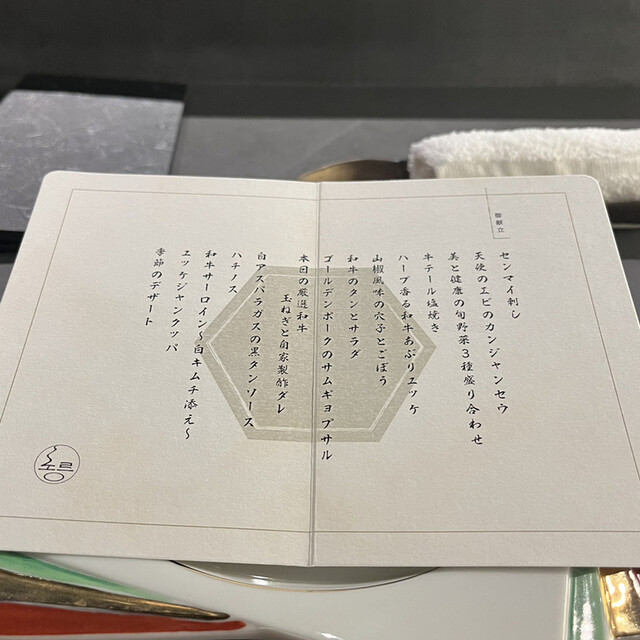 御献立
センマイ刺し
天使のエビのカンジャンセウ
美と健康の旬野菜3種盛り合わせ
牛テール塩焼き
ハーブ香る和牛あぶりユッケ
山椒風味の穴子とごぼう
和牛のタンとサラダ
ゴールデンポークのサムギョプサル
本日の厳選和牛
玉ねぎと自家製酢ダレ
白アスパラガスの黒タンソース
ハチノス
和牛サーロイン〜白キムチ添え〜
ユッケジャンクッパ
季節のデザート